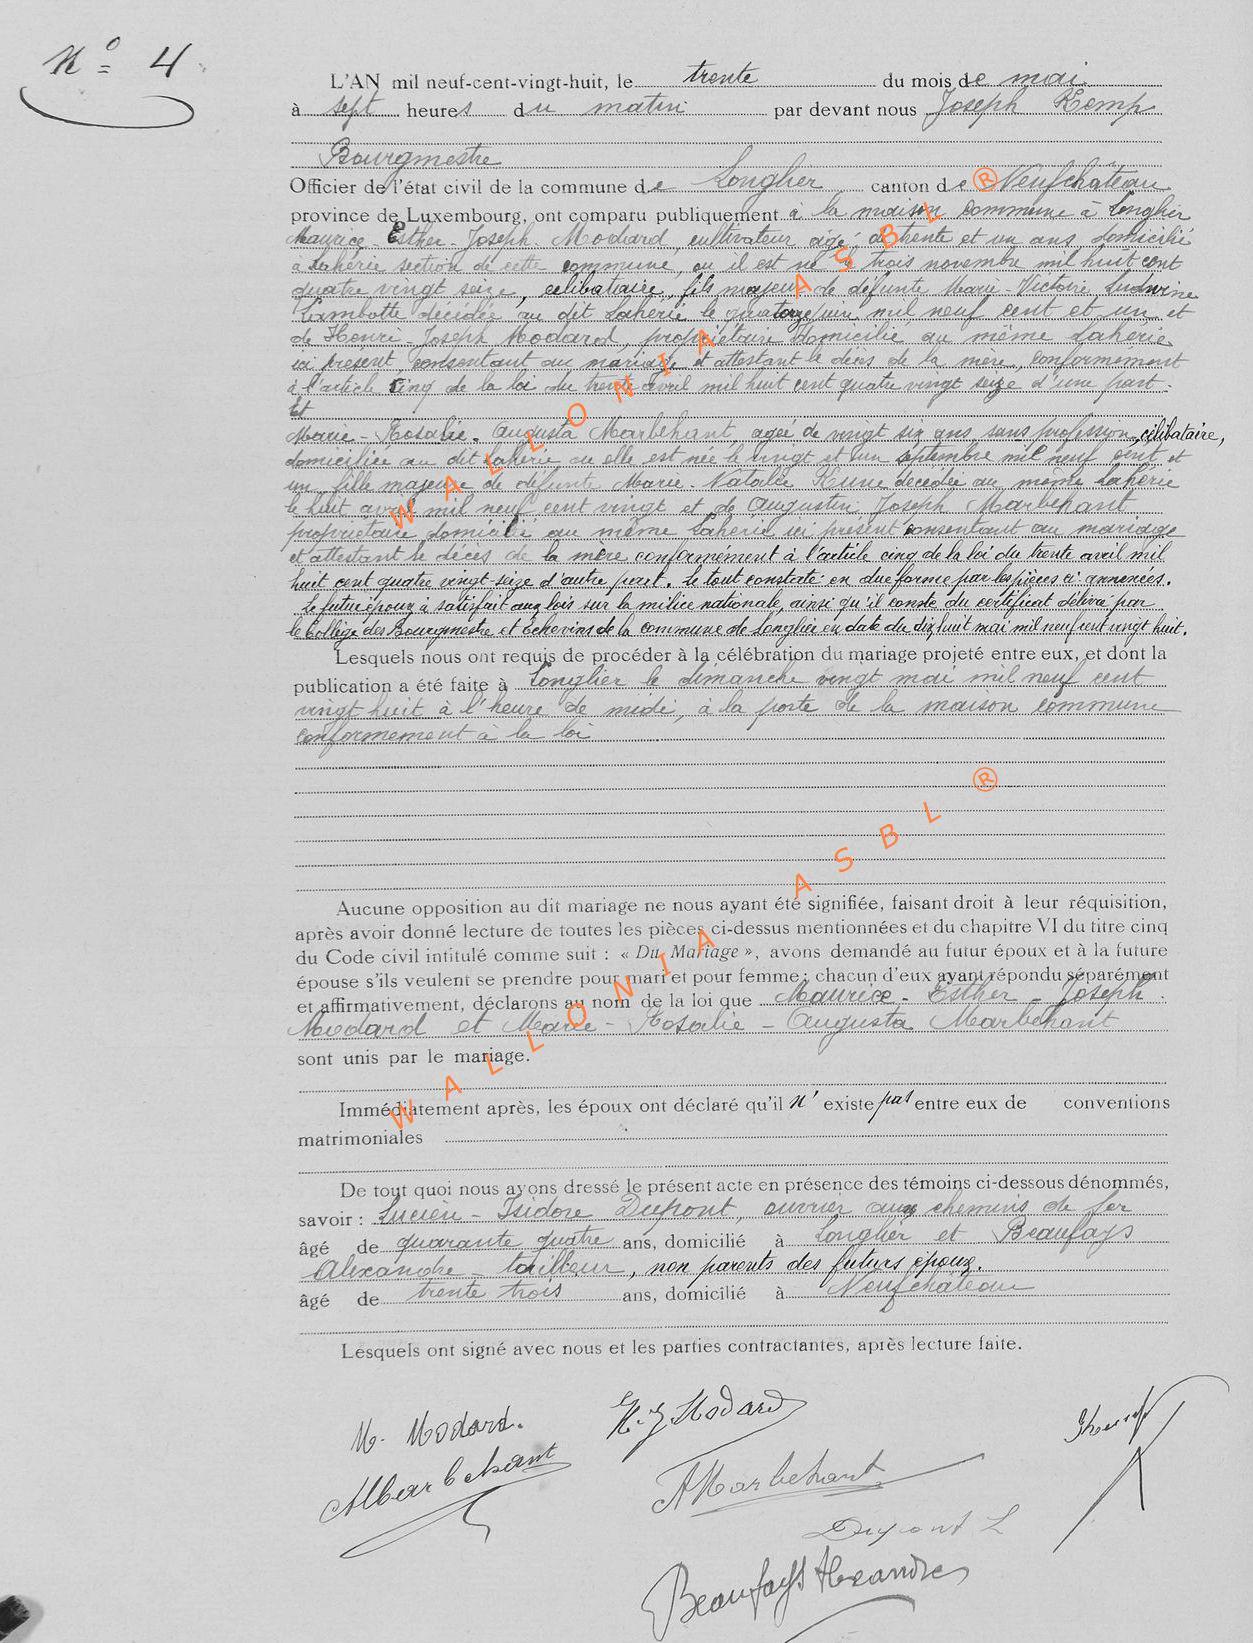 N° 4
L'AN mil neuf-cent-vingt-huit, le trente du mois de mai
à sept heures du matin par devant nous Joseph Kemp
Bourgmestre
Officier de l'état civil de la commune de Longlier canton de Neufchâteau
province de Luxembourg, ont comparu publiquement à la maison commune à Longlier
Maurice-Esther-Joseph Modard, cultivateur âgé de trente et un ans domicilié
à Lahérie section de cette commune, ou il est né le trois novembre mil huit cent
quatre vingt seize, célibataire, fils majeur de défunte Marie-Victoire Ludwine
Lambotte décédée au dit Lahérie le quatorze juin mil neuf cent et un et
de Henri-Joseph Modard, propriétaire domicilié au même Lahérie
ici présent consentant au mariage et attestant le décès de la mère, conformément
à l'article cinq de la loi du trente avril mil huit cent quatre vingt seize d'une part.
Et
Marie-Rosalie-Augusta Marbehant agée de vingt six ans sans profession, célibataire,
domiciliée au dit Lahérie ou elle est née le vingt et un septembre mil neuf cent et
un fille majeure de défunte Marie-Natalie décédée au même Lahérie
le huit avril mil neuf cent vingt et de Augustin Joseph Marbehant
propriétaire domicilié au même Lahérie ici présent consentant au mariage
et attestant le décès de la mère conformément à l'article cinq de la loi du trente avril mil
huit cent quatre vingt-seize d'autre part. Le tout constaté en due forme par les pièces ci-annexées.
Le futur époux à satisfait aux lois sur la milice nationale, ainsi qu'il conste du certificat délivré par
le Collège des Bourgmestre et Echevins de la commune de Longlier en date du dix huit mai mil neuf cent vingt huit.
Lesquels nous ont requis de procéder à la célébration du mariage projeté entre eux, et dont la
publication a été faite à Longlier le dimanche vingt mai mil neuf cent
vingt huit à l'heure de midi, à la porte de la maison commune
conformement à la loi
Aucune opposition au dit mariage ne nous ayant été signifiée, faisant droit à leur réquisition,
après avoir donné lecture de toutes les pièces ci-dessus mentionnées et du chapitre VI du titre cinq
du Code civil intitulé comme suit : « Du Mariage », avons demandé au futur époux et à la future
épouse s'ils veulent se prendre pour mari et pour femme ; chacun d'eux ayant répondu séparément
et affirmativement, déclarons au nom de la loi que Maurice-Esther-Joseph
Modard et Marie-Rosalie-Augusta Marbehant
sont unis par le mariage.
Immédiatement après, les époux ont déclaré qu'il n'existe pas entre eux de conventions
matrimoniales
De tout quoi nous avons dressé le présent acte en présence des témoins ci-dessous dénommés,
savoir : Lucien-Isidore Dupont, ouvrier aux chemins de fer
âgé de quarante quatre ans, domicilié à Longlier et Beaufays
Alexandre-tailleur, non parents des futurs époux.
âgé de trente trois ans, domicilié à Neufchâteau
Lesquels ont signé avec nous et les parties contractantes, après lecture faite.
M. Modard. H. J. Modard
Marbehant A Marbehant
Dupont L
Beaufays Alexandre
WALLONIA ASBL ®
WALLONIA ASBL ®